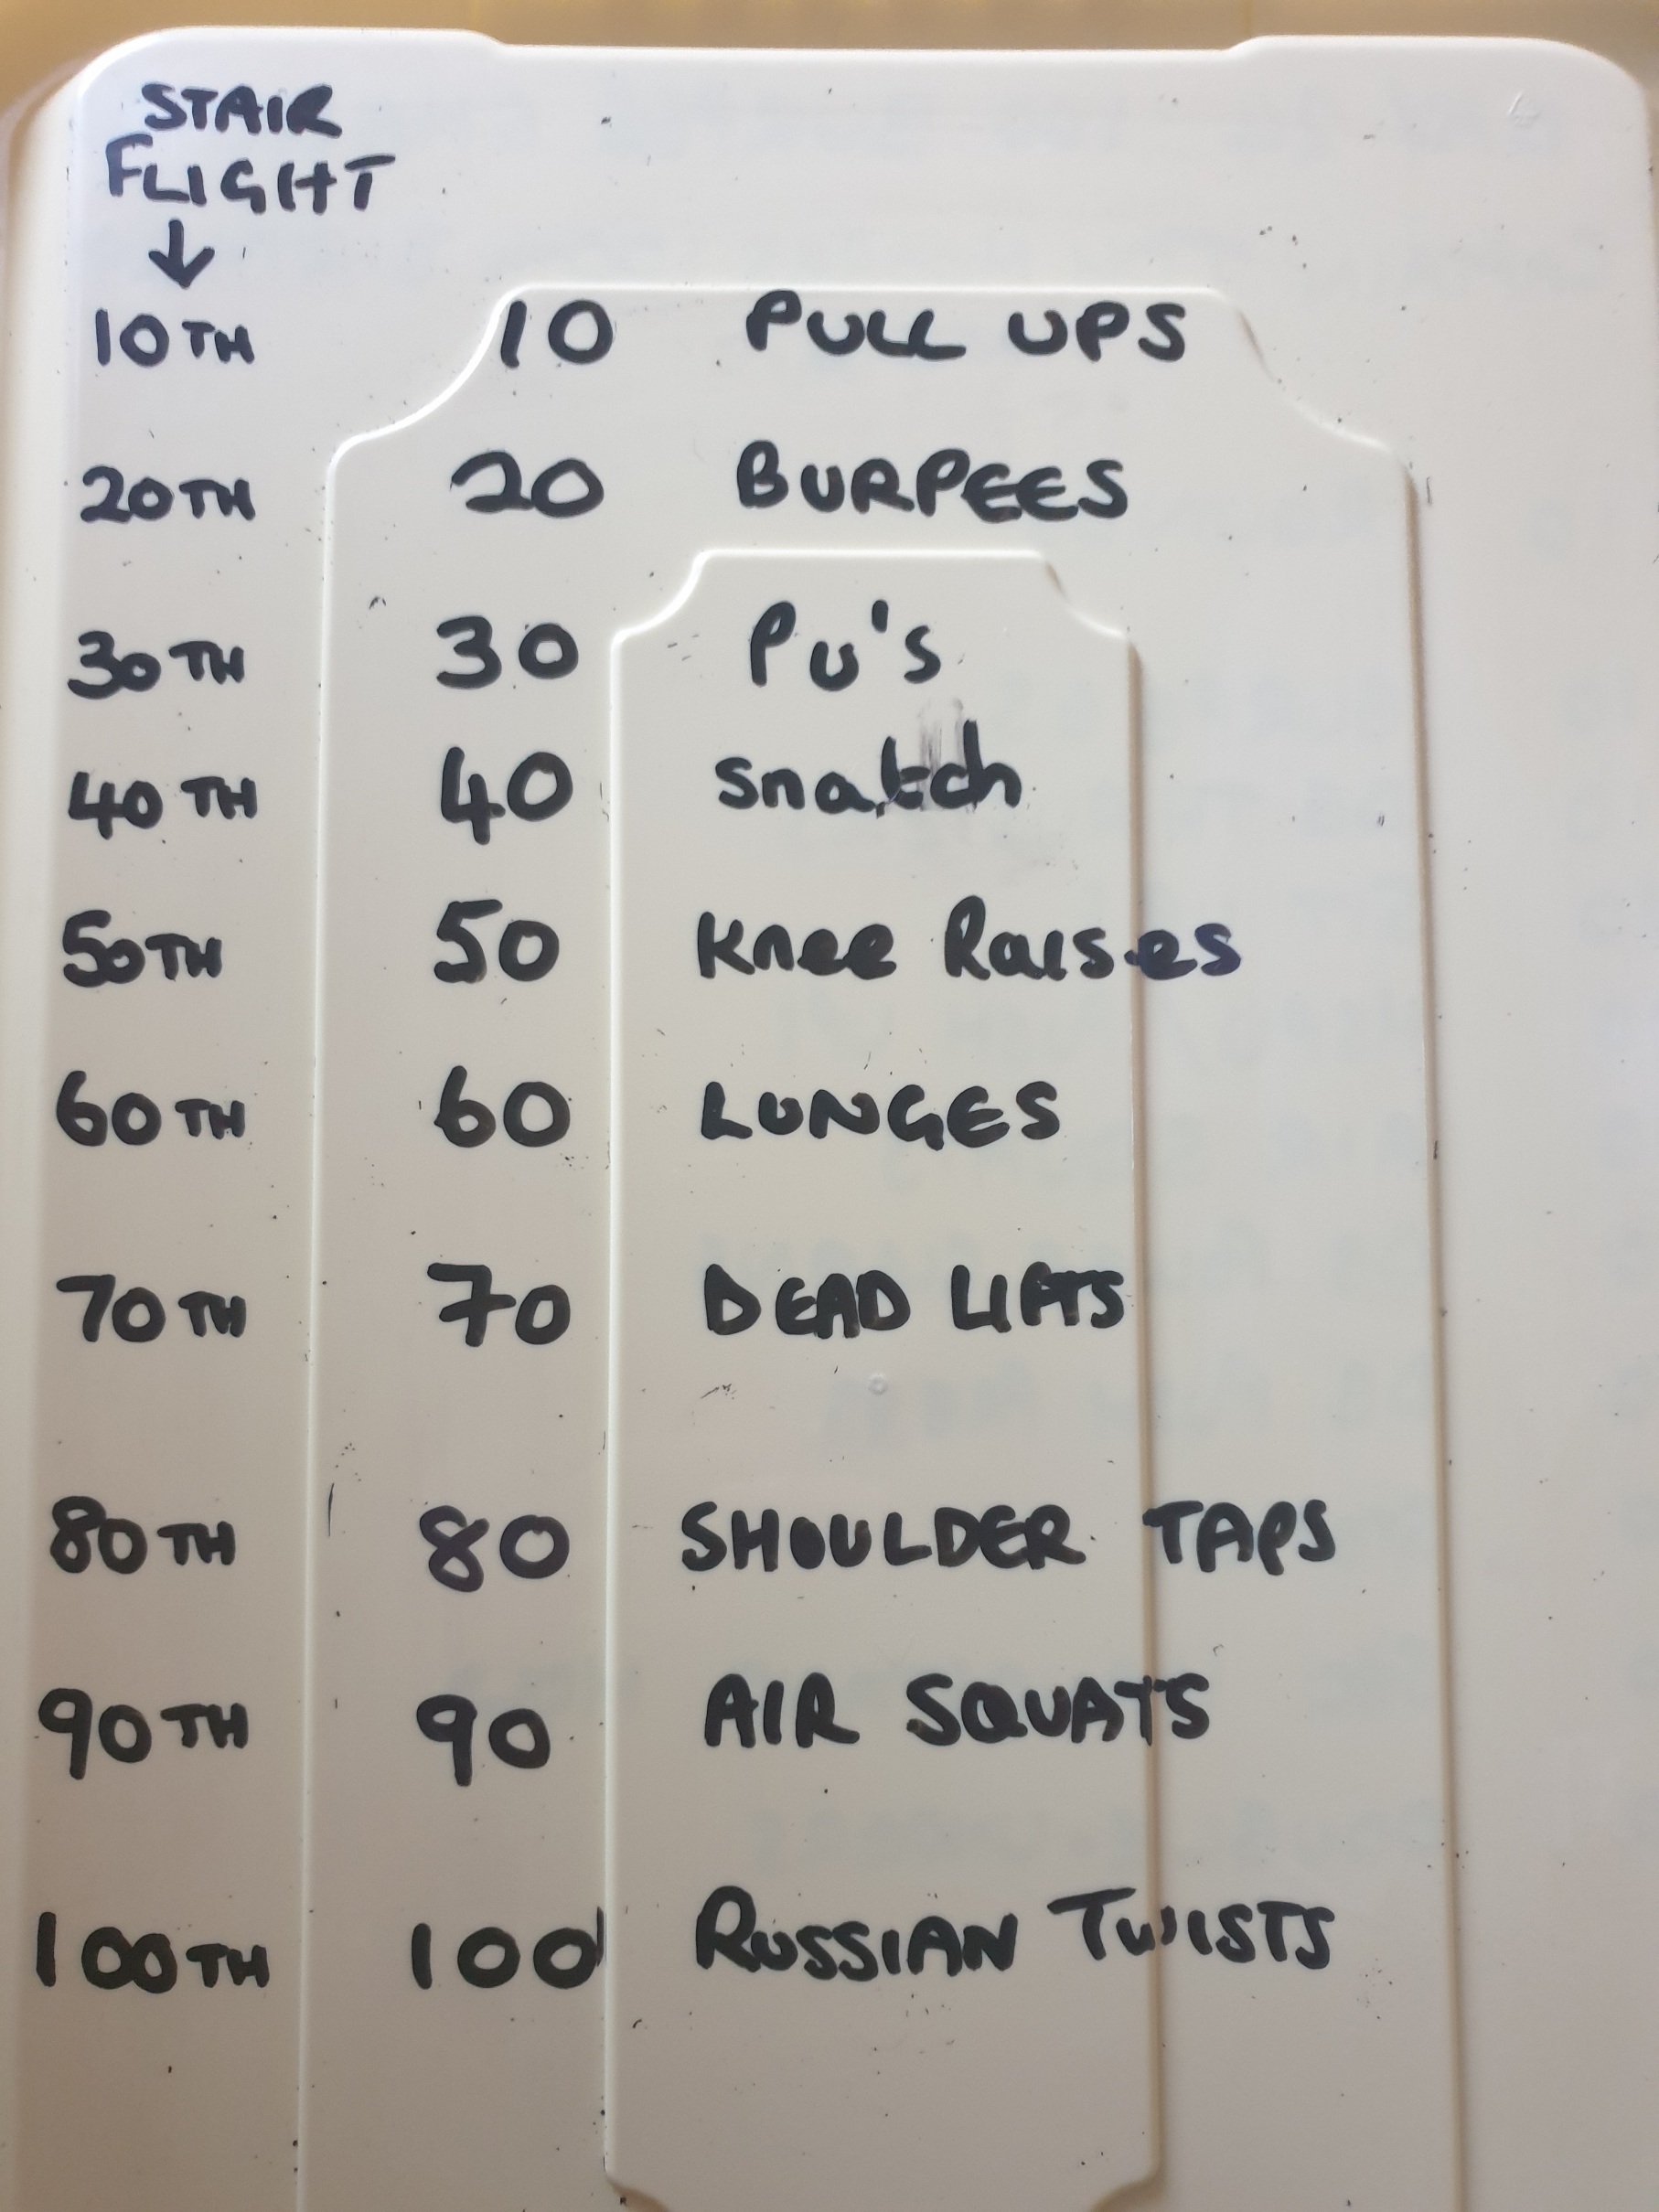 STAIR
FLIGHT
↓
10TH 10 PULL UPS
20TH 20 BURPEES
30TH 30 PU's
40TH 40 snatch
50TH 50 Knee Raises
60TH 60 LUNGES
70TH 70 DEAD LIFTS
80TH 80 SHOULDER TAPS
90TH 90 AIR SQUATS
100TH 100 RUSSIAN TWISTS